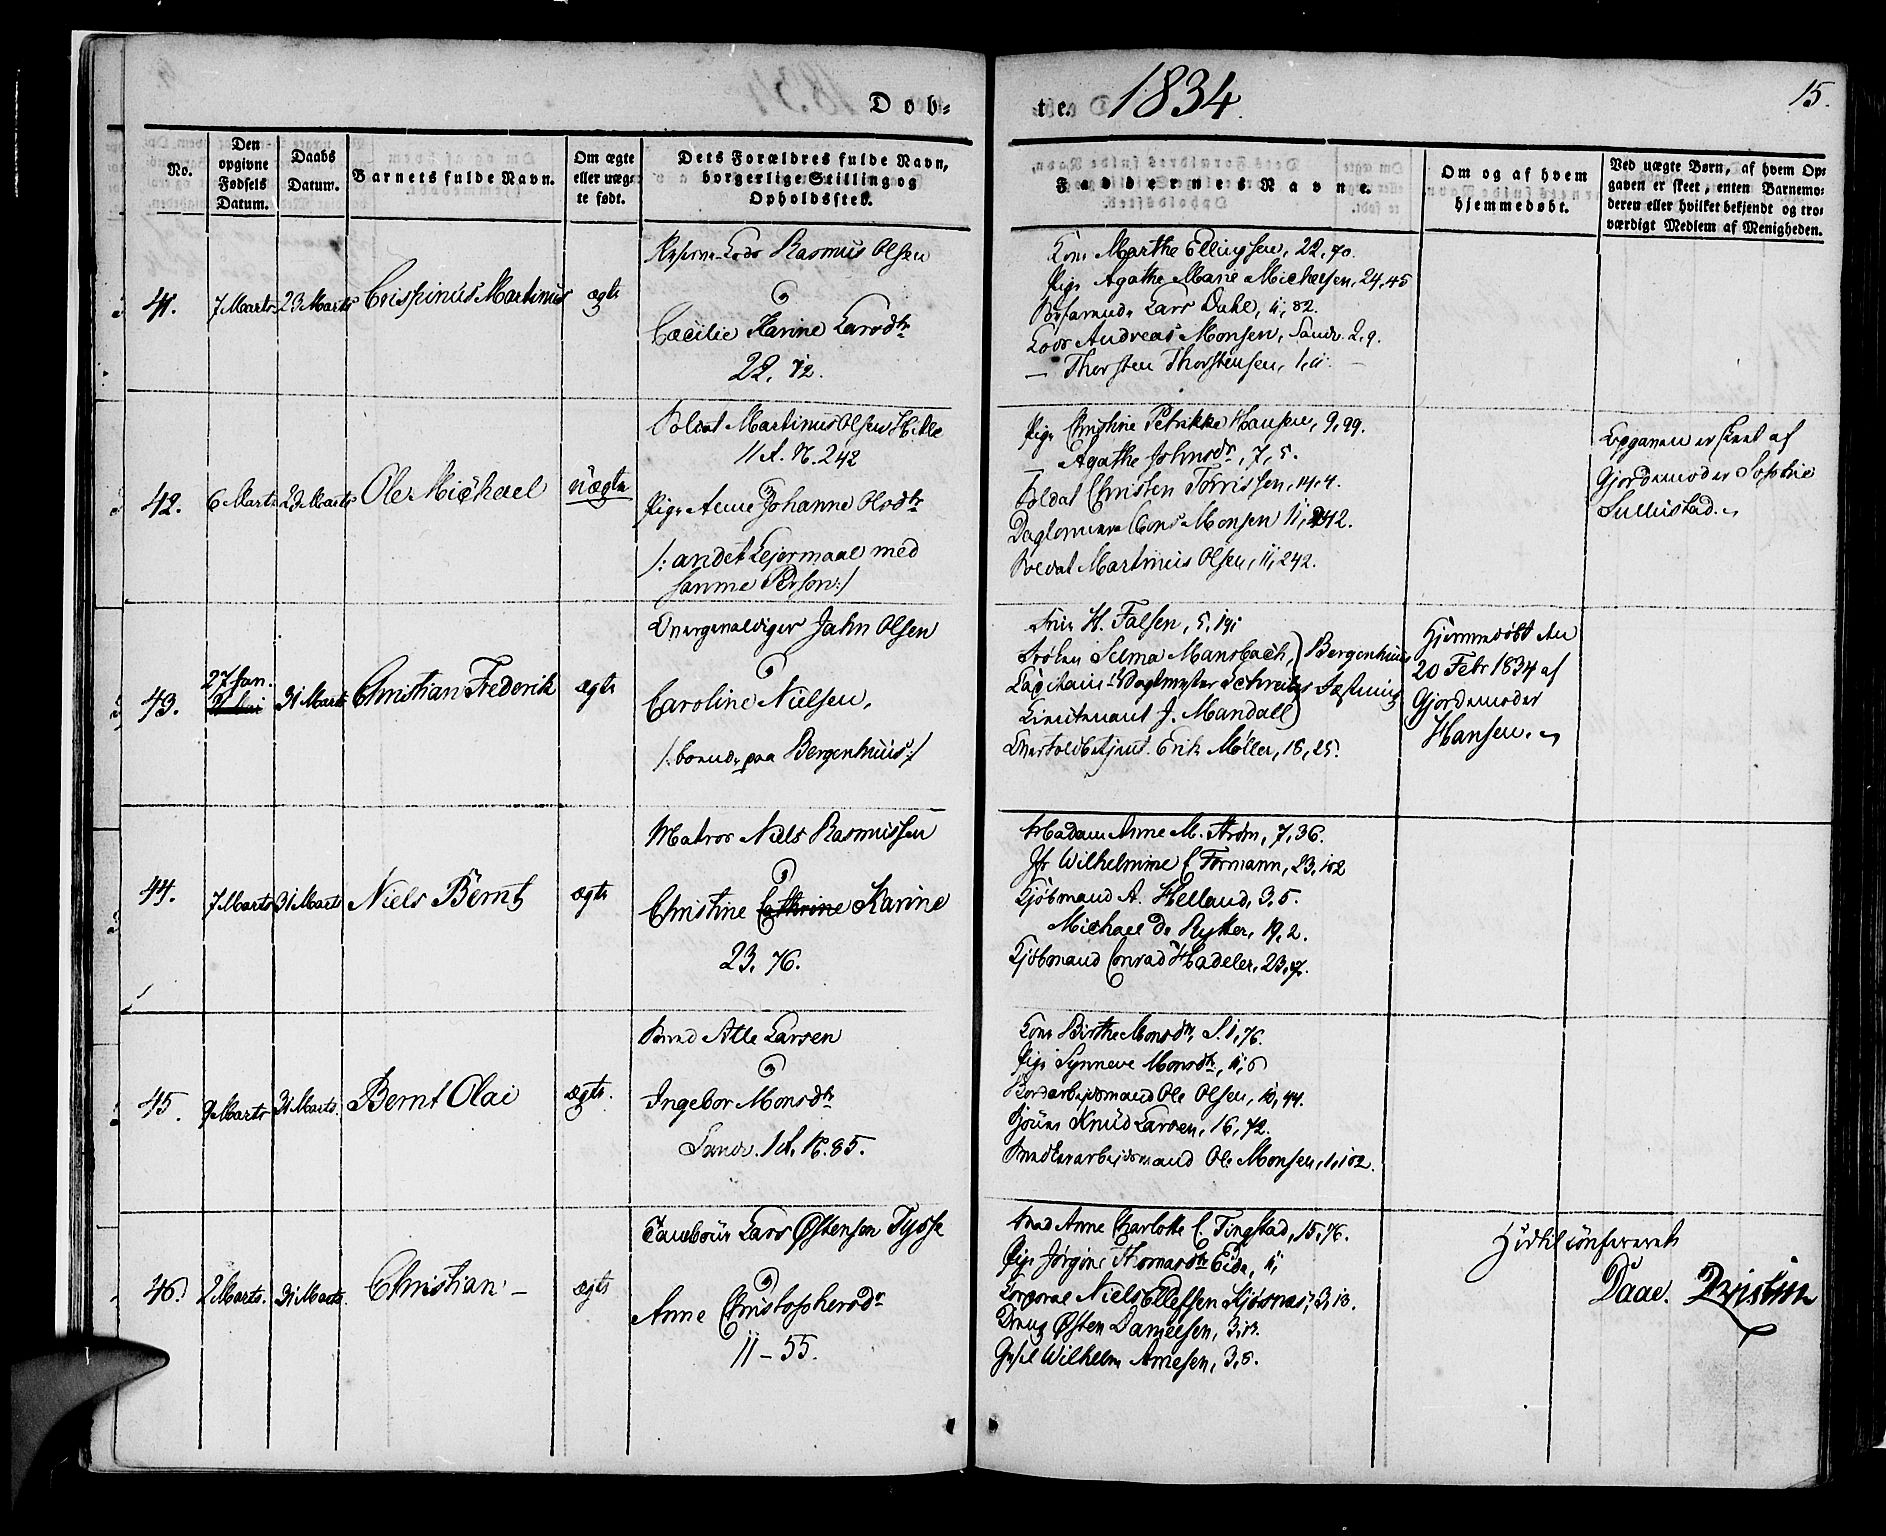 Døb-
te. 1834.
15.
No.
Den opgivne Fødsels Datum.
Daabs Datum.
Barnets fulde Navn.
Om ægte eller uægte født.
Dets Forældres fulde Navn, borgerlige Stilling og Opholdssted.
Faddernes Navne.
Om og af hvem hjemmedøbt.
Ved uægte Børn, af hvem Opgaven er skeet, enten Barnemoderen eller hvilket bekjendt og troværdigt Medlem af Menigheden.
41.
7 Marts
23 Marts
Crispinus Martinus
ægte
Rasmus Olsen
Cæcilie Karine Larsdtr
22. 72.
Kone Marthe Ellingsen, 22, 70.
Pige Agathe Marie Michelsen, 24, 45
Lars Dahl, 11, 82.
Andreas Monsen, Sandv. 2, 9.
— Thorsten Thorstensen, 1, 11.
42.
6 Marts
23 Marts
Ole Michael
uægte
Soldat Martinus Olsen Hille
11 A. N. 242
Pige Anne Johanne Olsdtr
/: andet Leiermaal med
samme Person :/
Pige Christine Petrikke Hansen, 9, 99.
— Agathe Johnsdtr, 7, 5.
Soldat Christen Torrissen, 14, 4.
Monsen 11, 242.
Soldat Martinus Olsen, 11, 242.
Opgaven er skeet af
Gjordemoder Sophie
43.
27 Jan.
31 Marts
Christian Frederik
ægte
John Olsen
Caroline Nielsen,
/: boende paa Bergenhuus :/
H. Falsen, 5, 191
Frøken Selma Mansbach,
Bergenhuus
Fæstning
Lieutenant J. Mandall
Erik Møller, 18, 25.
Hjemmedøbt den
20 Febr 1834 af
Gjordemoder
Hansen.
44.
7 Marts
31 Marts
Niels Bernt
ægte
Matros Niels Rasmussen
Christine Cathrine Karine
23. 76.
Madam Anne M. Strøm, 7, 36.
Jfr Wilhelmine C Formann, 23, 102
Kjøbmand A. Helland, 3, 5.
Michael de Rytter, 19, 2.
Kjøbmand Conrad Hadeler, 23, 7.
45.
9 Marts
31 Marts
Bernt Olai
ægte.
Atle Larsen
Ingebor Monsdtr
Sandv. 1 A. N. 85.
Kone Birthe Monsdtr, S. 1, 76.
Pige Synneve Monsdtr, 11, 6
Ole Olsen, 10, 44.
Knud Larsen, 16, 72.
Ole Monsen, 1, 102.
46.
2 Marts.
31 Marts.
Christian —
ægte
Tambour Lars Østensen Tysse
Anne Christophersdtr
11 – 55.
Anne Charlotte C. Tingstad, 15, 76.
Pige Jørgine Thomasdtr Eide, 11
Corporal Niels Ellefsen Kjosnæs, 3, 13.
Dreng Østen Danielsen, 3, 13.
Wilhelm Arnesen, 3, 5.
Hidtil confereret
Daae.